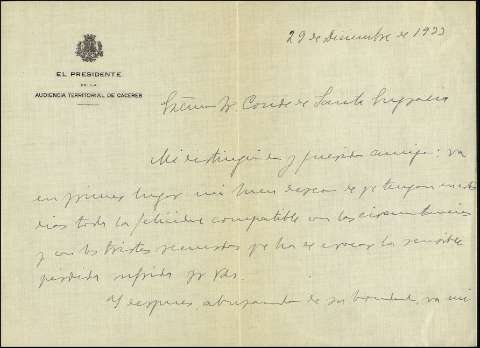 29 de diciembre de 1933
EL PRESIDENTE
DE LA
AUDIENCIA TERRITORIAL DE CACERES
Sr. Conde de Santa Engracia
Mi distinguido y querido amigo: va
en primer lugar mi buen deseo de q tengan en estos
dias toda la felicidad compatible con las circunstancias
y con los tristes recuerdos q ha de evocar la sensible
perdida sufrida
Y despues, abusando de su bondad, va mi